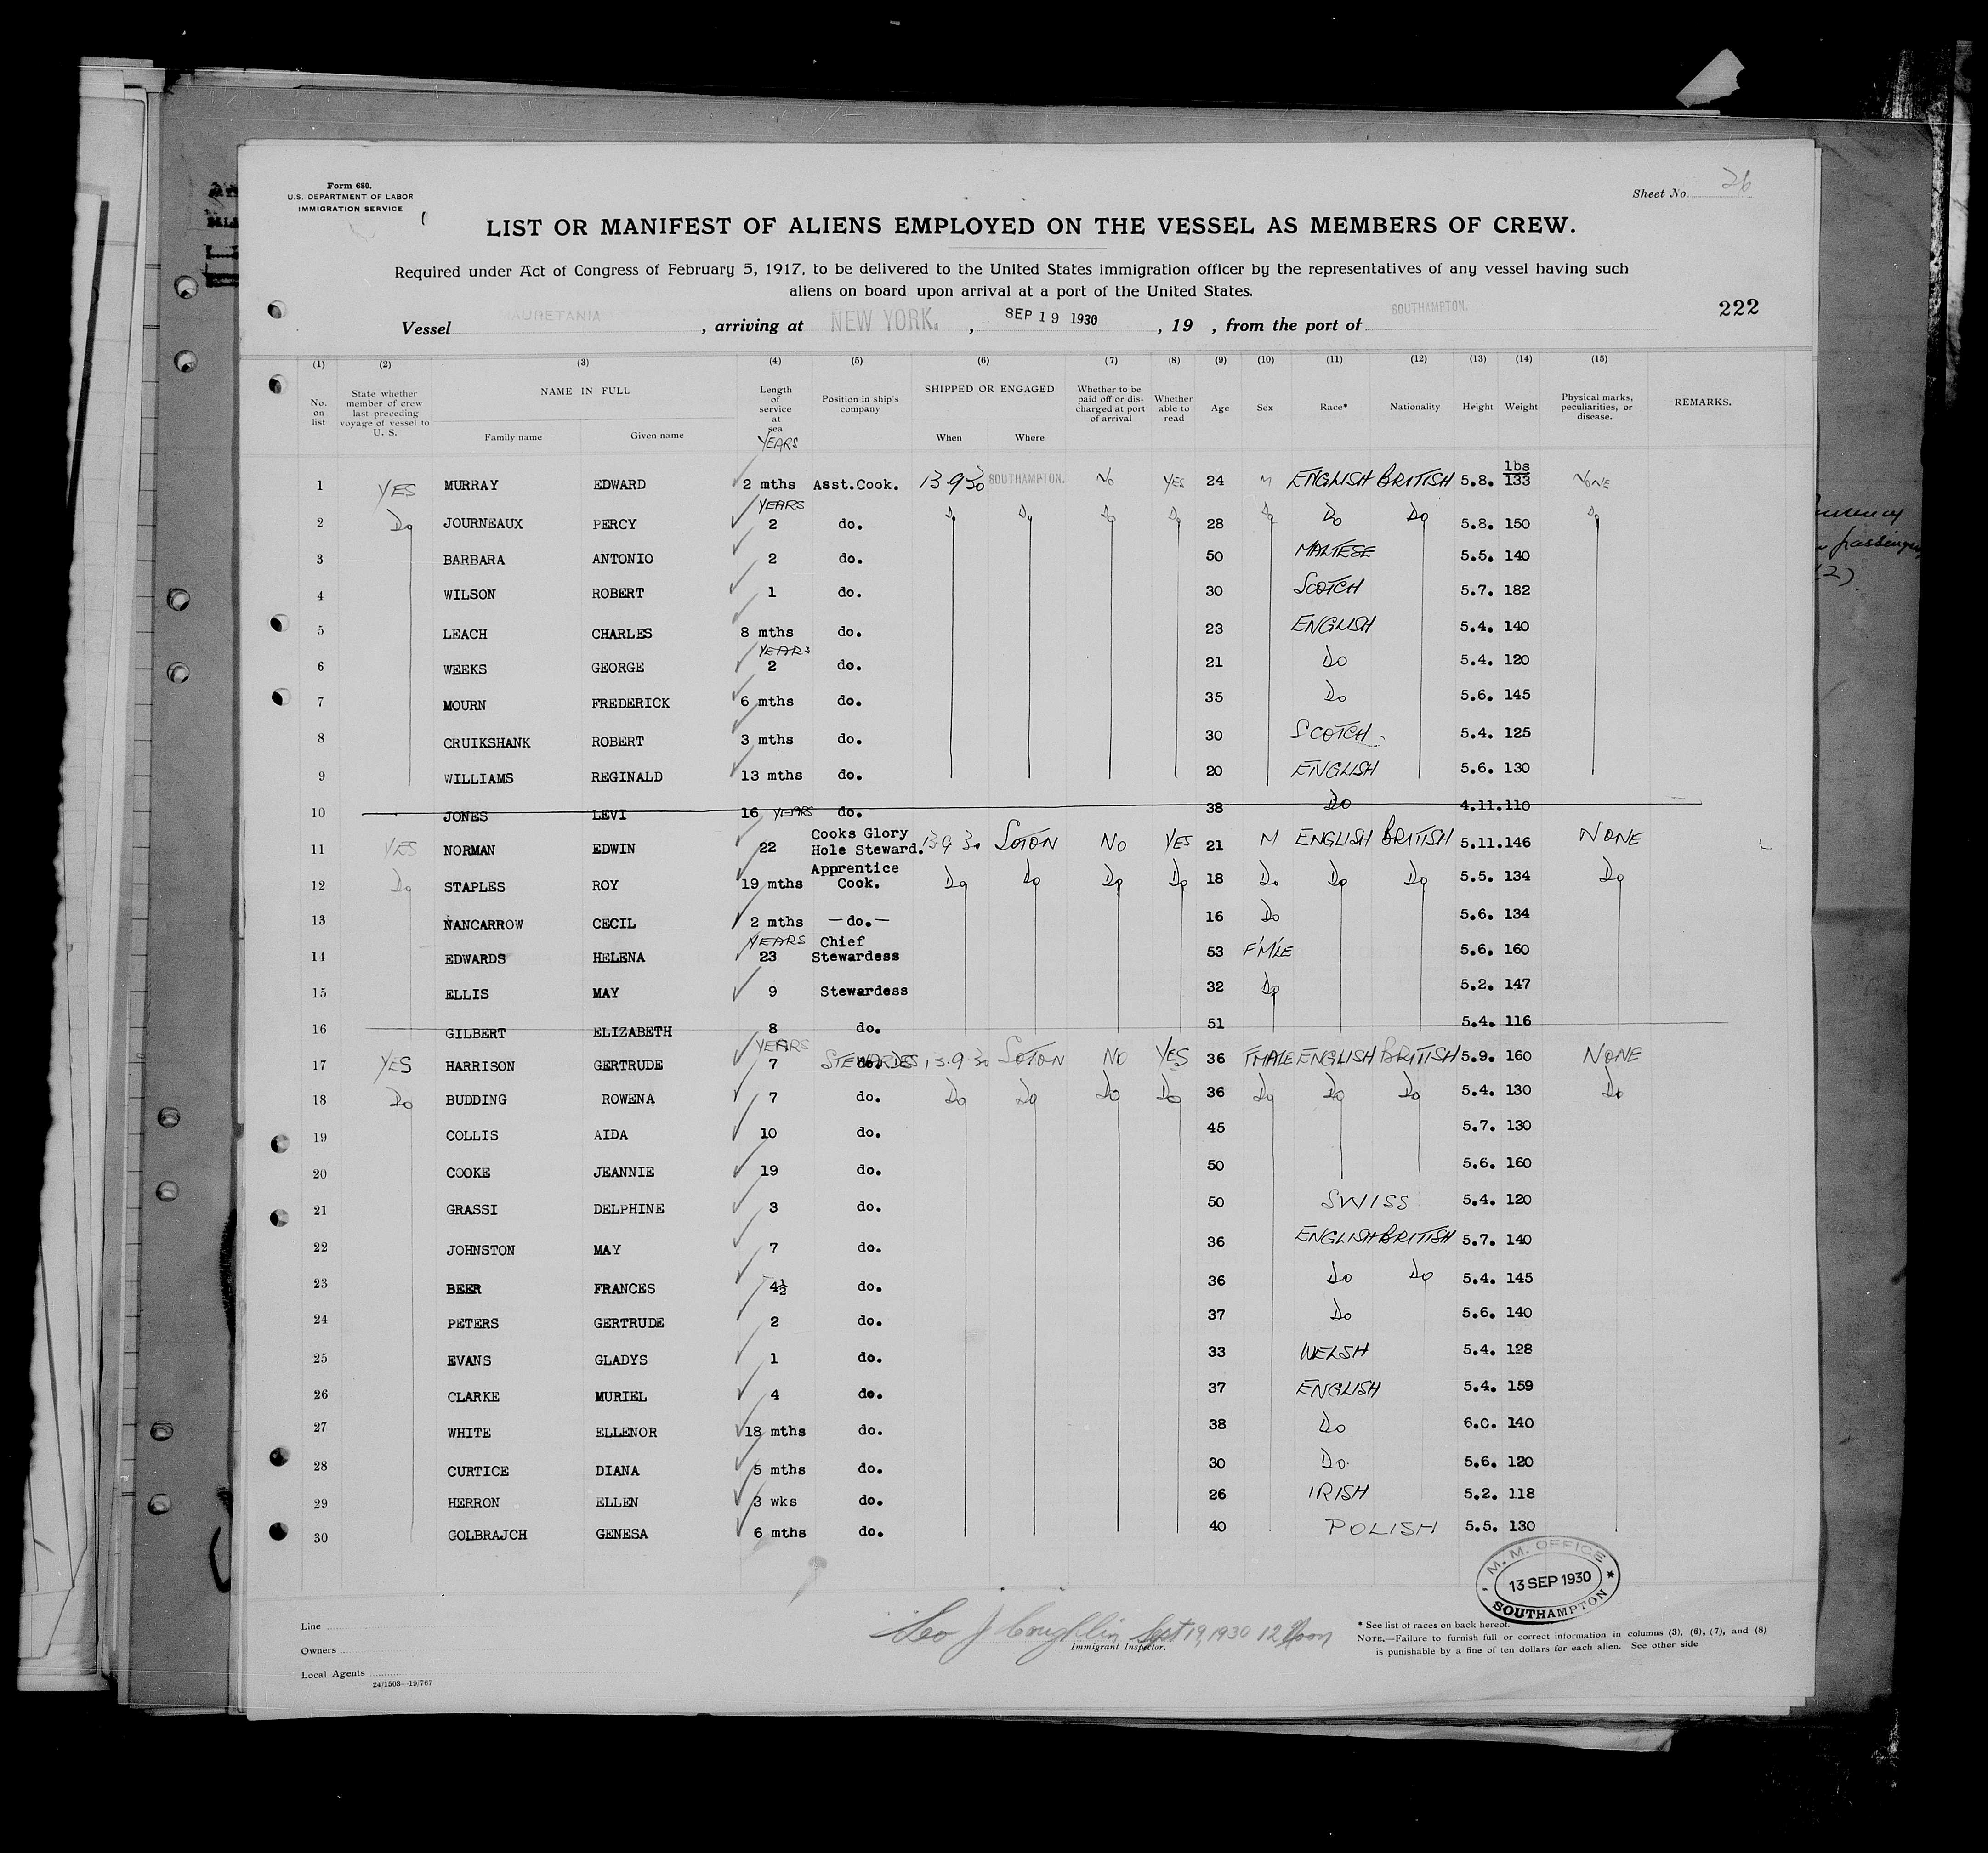 Form 680.
U.S. DEPARTMENT OF LABOR
IMMIGRATION SERVICE
Sheet No. 26
LIST OR MANIFEST OF ALIENS EMPLOYED ON THE VESSEL AS MEMBERS OF CREW.
Required under Act of Congress of February 5, 1917, to be delivered to the United States immigration officer by the representatives of any vessel having such
aliens on board upon arrival at a port of the United States.
222
Vessel MAURETANIA , arriving at NEW YORK. , SEP 19 1930 , 19 , from the port of SOUTHAMPTON.
(1) (2) (3) (4) (5) (6) (7) (8) (9) (10) (11) (12) (13) (14) (15)
No. on list State whether member of crew last preceding voyage of vessel to U. S. NAME IN FULL Family name Given name Length of service at sea YEARS Position in ship's company SHIPPED OR ENGAGED When Where Whether to be paid off or discharged at port of arrival Whether able to read Age Sex Race* Nationality Height Weight Physical marks, peculiarities, or disease. REMARKS.
lbs
1 YES MURRAY EDWARD 2 mths Asst.Cook. 13 9 30 SOUTHAMPTON. NO YES 24 M ENGLISH BRITISH 5.8. 133 NONE
2 Do JOURNEAUX PERCY YEARS 2 do. Do Do Do Do 28 Do Do Do 5.8. 150 Do
3 BARBARA ANTONIO 2 do. 50 MALTESE 5.5. 140
4 WILSON ROBERT 1 do. 30 SCOTCH 5.7. 182
5 LEACH CHARLES 8 mths do. 23 ENGLISH 5.4. 140
6 WEEKS GEORGE YEARS 2 do. 21 Do 5.4. 120
7 MOURN FREDERICK 6 mths do. 35 Do 5.6. 145
8 CRUIKSHANK ROBERT 3 mths do. 30 SCOTCH. 5.4. 125
9 WILLIAMS REGINALD 13 mths do. 20 ENGLISH 5.6. 130
10 JONES LEVI 16 YEARS do. 38 Do 4.11. 110
11 YES NORMAN EDWIN 22 Cooks Glory Hole Steward. 13 9 30 SOTON NO YES 21 M ENGLISH BRITISH 5.11. 146 NONE
12 Do STAPLES ROY 19 mths Apprentice Cook. Do Do Do Do 18 Do Do Do 5.5. 134 Do
13 NANCARROW CECIL 2 mths —do.— 16 Do 5.6. 134
14 EDWARDS HELENA YEARS 23 Chief Stewardess 53 F'M'LE 5.6. 160
15 ELLIS MAY 9 Stewardess 32 Do 5.2. 147
16 GILBERT ELIZABETH 8 do. 51 5.4. 116
17 YES HARRISON GERTRUDE YEARS 7 do. 13.9 30 SOTON NO YES 36 FMALE ENGLISH BRITISH 5.9. 160 NONE
18 Do BUDDING ROWENA 7 do. Do Do Do Do 36 Do Do Do 5.4. 130 Do
19 COLLIS AIDA 10 do. 45 5.7. 130
20 COOKE JEANNIE 19 do. 50 5.6. 160
21 GRASSI DELPHINE 3 do. 50 SWISS 5.4. 120
22 JOHNSTON MAY 7 do. 36 ENGLISH BRITISH 5.7. 140
23 BEER FRANCES 4½ do. 36 Do Do 5.4. 145
24 PETERS GERTRUDE 2 do. 37 Do 5.6. 140
25 EVANS GLADYS 1 do. 33 WELSH 5.4. 128
26 CLARKE MURIEL 4 do. 37 ENGLISH 5.4. 159
27 WHITE ELLENOR 18 mths do. 38 Do 6.0. 140
28 CURTICE DIANA 5 mths do. 30 Do. 5.6. 120
29 HERRON ELLEN 3 wks do. 26 IRISH 5.2. 118
30 GOLBRAJCH GENESA 6 mths do. 40 POLISH 5.5. 130
M. M. OFFICE
13 SEP 1930
SOUTHAMPTON
Line
Owners
Local Agents
24/1503—19/767
Leo J Coughlin Sept 19, 1930 12 Noon
Immigrant Inspector.
* See list of races on back hereof.
NOTE.—Failure to furnish full or correct information in columns (3), (6), (7), and (8)
is punishable by a fine of ten dollars for each alien. See other side